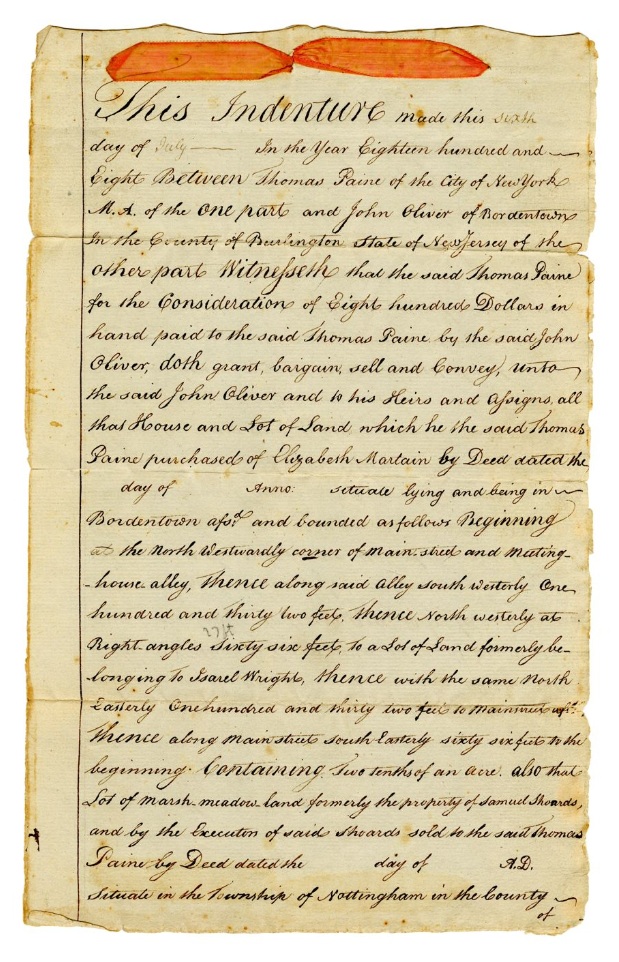 This Indenture made this sixth
day of July — In the Year Eighteen hundred and
Eight Between Thomas Paine of the City of New York
M. A. of the One part and John Oliver of Bordentown
In the County of Burlington State of New Jersey of the
other part Witnesseth that the said Thomas Paine
for the Consideration of Eight hundred Dollars in
hand paid to the said Thomas Paine by the said John
Oliver, doth grant, bargain, sell and Convey, unto
the said John Oliver and to his Heirs and Assigns, all
that House and Lot of Land which he the said Thomas
Paine purchased of Elizabeth Martain by Deed dated the
day of Anno: situate lying and being in
Bordentown afsd. and bounded as follows Beginning
at the North Westwardly corner of Main-street and Meeting-
-house-alley, thence along said Alley South Westerly One
hundred and thirty two feet, thence North westerly at
Right angles Sixty six feet, to a Lot of Land formerly be-
longing to Isarel Wright, thence with the same North
Easterly One hundred and thirty two feet to Mainstreet afsd.
thence along Mainstreet South Easterly sixty six feet to the
beginning. Containing Two tenths of an acre. also that
Lot of Marsh-meadow-land formerly the property of Samuel Shoards,
and by the Executors of said Shoards sold to the said Thomas
Paine by Deed dated the day of A.D.
Situate in the Township of Nottingham in the County
of